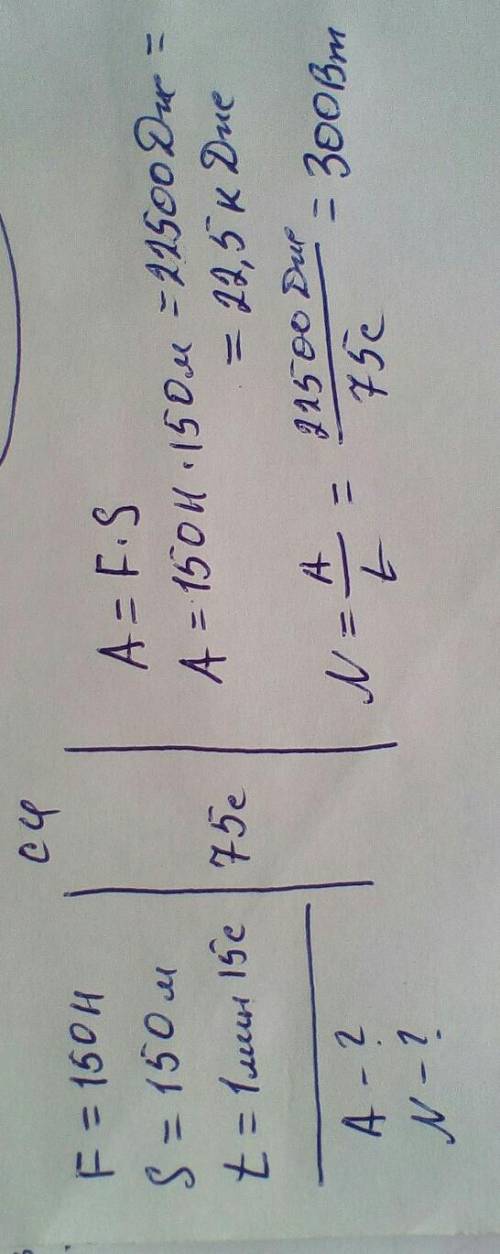 СИ
F = 150Н
S = 150м
t = 1мин 15с
75с
A - ?
N - ?
A = F · S
A = 150Н · 150м = 22500Дж =
= 22,5кДж
N = A/t = 22500Дж/75с = 300Вт